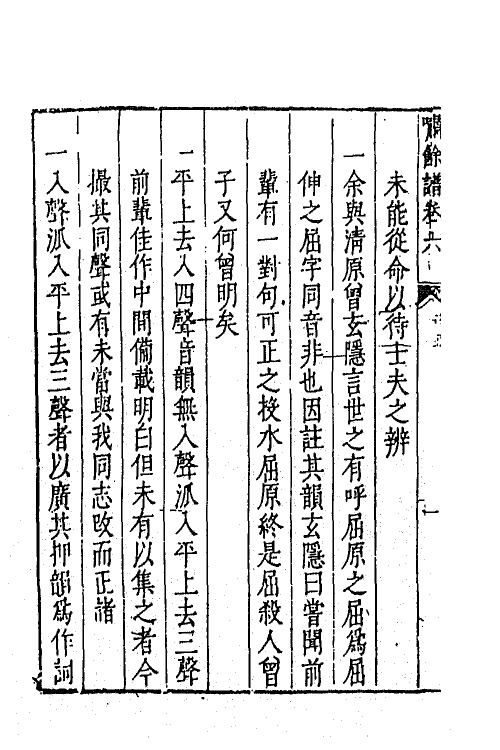 嘯餘譜卷六
未能從命以待士夫之辨
一余與清原曾玄隱言世之有呼屈原之屈為屈
伸之屈字同音非也因註其韻玄隱曰嘗聞前
輩有一對句可正之投水屈原終是屈殺人曾
子又何曾明矣
一平上去入四聲音韻無入聲派入平上去三聲
前輩佳作中間備載明白但未有以集之者今
撮其同聲或有未當與我同志改而正諸
一入聲派入平上去三聲者以廣其押韻為作詞